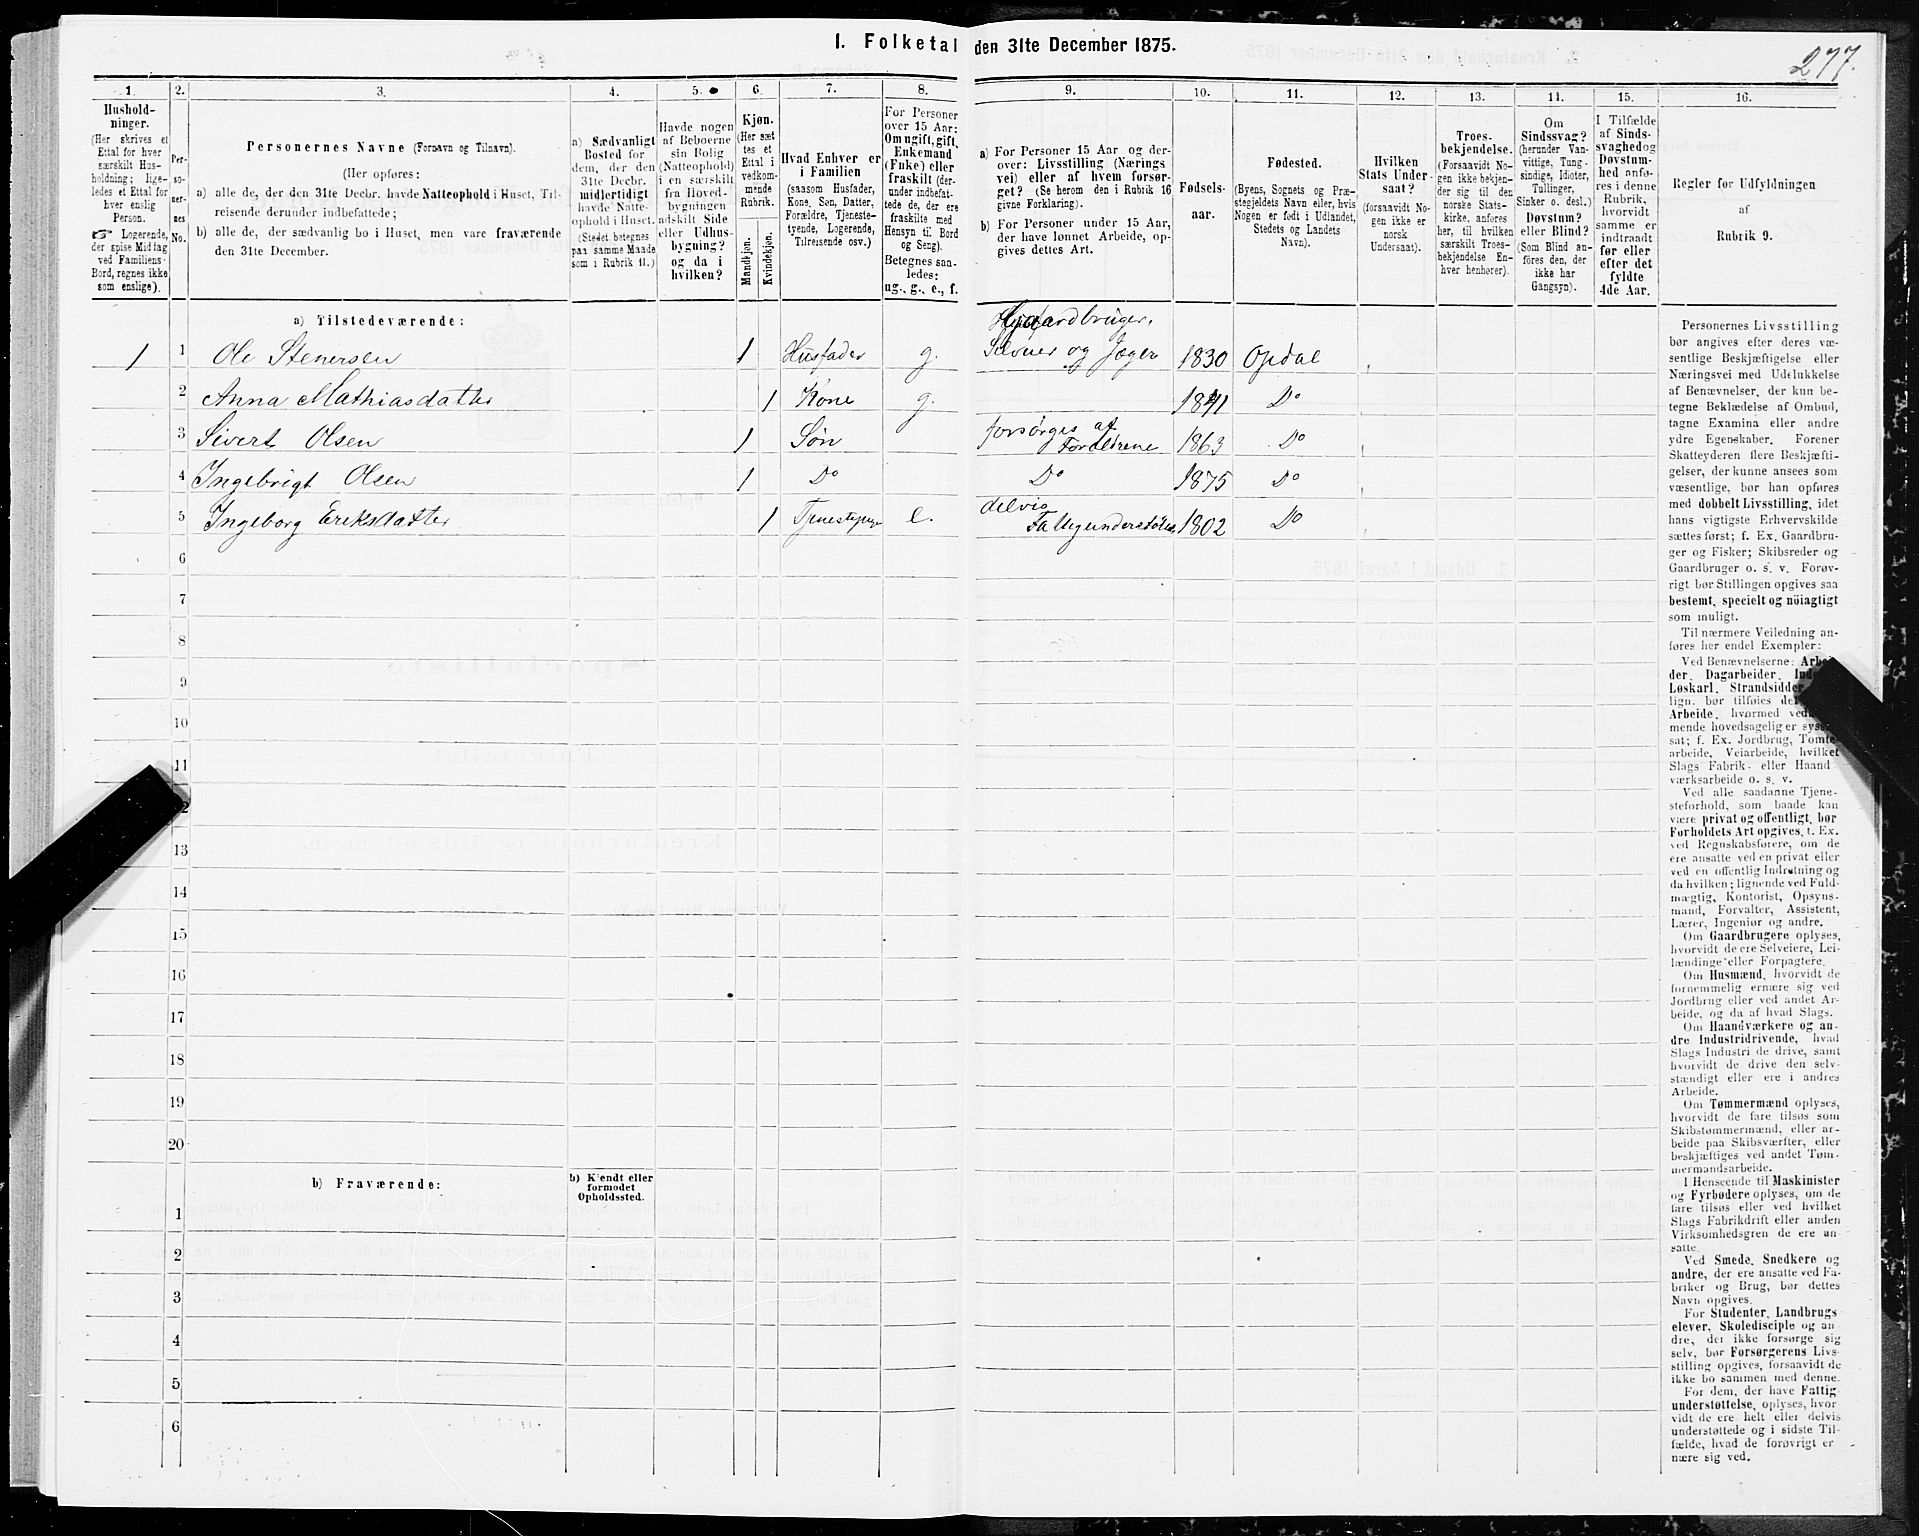 I. Folketal den 31te December 1875.
277.
1.
Hushold-
ninger.
(Her skrives et
Ettal for hver
særskilt Hus-
holdning; lige-
ledes et Ettal for
hver enslig
Person.
☞ Logerende,
der spise Middag
ved Familiens
Bord, regnes ikke
som enslige).
2.
Per-
so-
ner-
nes
No.
3.
Personernes Navne (Fornavn og Tilnavn).
(Her opføres:
a) alle de, der den 31te Decbr. havde Natteophold i Huset, Til-
reisende derunder indbefattede;
b) alle de, der sædvanlig bo i Huset, men vare fraværende
den 31te December.
4.
a) Sædvanligt
Bosted for
dem, der den
31te Decbr.
midlertidigt
havde Natte-
ophold i Huset.
(Stedet betegnes
paa samme Maade
som i Rubrik 11.)
5.
Havde nogen
af Beboerne
sin Bolig
(Natteophold)
i en særskilt
fra Hoved-
bygningen
adskilt Side
eller Udhus-
bygning?
og da i
hvilken?
6.
Kjøn.
(Her sæt
tes et
Ettal i
vedkom-
mende
Rubrik.
Mandkjøn.
Kvindekjøn.
7.
Hvad Enhver er
i Familien
(saasom Husfader,
Kone, Søn, Datter,
Forældre, Tjeneste-
tyende, Logerende,
Tilreisende osv.)
8.
For Personer
over 15 Aar:
Om ugift, gift,
Enkemand
(Enke) eller
fraskilt (der-
under indbefat-
tede de, der ere
fraskilte med
Hensyn til Bord
og Seng).
Betegnes saa-
ledes:
ug., g., e., f.
9.
a) For Personer 15 Aar og der-
over: Livsstilling (Nærings
vei) eller af hvem forsør-
get? (Se herom den i Rubrik 16
givne Forklaring).
b) For Personer under 15 Aar,
der have lønnet Arbeide, op-
gives dettes Art.
10.
Fødsels-
aar.
11.
Fødested.
(Byens, Sognets og Præ-
stegjeldets Navn eller, hvis
Nogen er født i Udlandet,
Stedets og Landets
Navn).
12.
Hvilken
Stats Under-
saat?
(forsaavidt No-
gen ikke er
norsk
Undersaat).
13.
Troes-
bekjendelse.
(Forsaavidt No-
gen ikke bekjen-
der sig til den
norske Stats-
kirke, anføres
her, til hvilken
særskilt Troes-
bekjendelse En-
hver henhører).
14.
Om
Sindssvag?
(herunder Van-
vittige, Tung-
sindige, Idioter,
Tullinger,
Sinker o. desl.)
Døvstum?
eller Blind?
(Som Blind an-
føres den, der
ikke har
Gangsyn).
15.
I Tilfælde
af Sinds-
svaghed og
Døvstum-
hed anfø-
res i denne
Rubrik,
hvorvidt
samme er
indtraadt
før eller
efter det
fyldte
4de Aar.
16.
Regler for Udfyldningen
af
Rubrik 9.
a) Tilstedeværende:
Gaardbruger,
1 1 Ole Stenersen 1 Husfader g. Selveier og Jæger 1830 Opdal
2 Anna Mathiasdatter 1 Kone g. 1841 Do
3 Sivert Olsen 1 Søn forsørges af Forældrene 1863 Do
4 Ingebrigt Olsen 1 Do Do 1875 Do
5 Ingeborg Eriksdatter 1 e. delvis Fattigunderstøttes 1802 Do
6
7
8
9
10
11
2
13
14
15
16
17
18
19
20
b) Fraværende:
b) Kjendt eller
formodet
Opholdssted.
1
2
3
4
5
6
Personernes Livsstilling
bør angives efter deres væ-
sentlige Beskjæftigelse eller
Næringsvei med Udelukkelse
af Benævnelser, der kun be-
tegne Beklædelse af Ombud,
tagne Examina eller andre
ydre Egenskaber. Forener
Skatteyderen flere Beskjæfti-
gelser, der kunne ansees som
væsentlige, bør han opføres
med dobbelt Livsstilling, idet
hans vigtigste Erhvervskilde
sættes først; f. Ex. Gaardbru-
ger og Fisker; Skibsreder og
Gaardbruger o. s. v. Forøv-
rigt bør Stillingen opgives saa
bestemt, specielt og nöiagtigt
som muligt.
Til nærmere Veiledning an-
føres her endel Exempler:
Ved Benævnelserne: Arbei
der, Dagarbeider, Inde
Løskarl, Strandsidder
lign. bør tilføies de
Arbeide, hvormed ved
mende hovedsagelig er syss
sat; f. Ex. Jordbrug, Tomte-
arbeide, Veiarbeide, hvilket
Slags Fabrik- eller Haand-
værksarbeide o. s. v.
Ved alle saadanne Tjene-
steforhold, som baade kan
være privat og offentligt, bør
Forholdets Art opgives, t. Ex.
ved Regnskabsførere, om de
ere ansatte ved en privat eller
ved en offentlig Indretning og
da hvilken; lignende ved Fuld-
mægtig, Kontorist, Opsyns-
mand, Forvalter, Assistent,
Lærer, Ingeniør og andre.
Om Gaardbrugere oplyses,
hvorvidt de ere Selveiere, Lei-
lændinge eller Forpagtere.
Om Husmænd, hvorvidt de
fornemmelig ernære sig ved
Jordbrug eller ved andet Ar-
beide, og da af hvad Slags.
Om Haandværkere og an-
dre Industridrivende, hvad
Slags Industri de drive, samt
hvorvidt de drive den selv-
stændigt eller ere i andres
Arbeide.
Om Tømmermænd oplyses,
hvorvidt de fare tilsøs som
Skibstømmermænd, eller ar-
beide paa Skibsværfter, eller
beskjæftiges ved andet Tøm-
mermandsarbeide.
I Henseende til Maskinister
og Fyrbødere oplyses, om de
fare tilsøs eller ved hvilket
Slags Fabrikdrift eller anden
Virksomhedsgren de ere an-
satte.
Ved Smede, Snedkere og
andre, der ere ansatte ved Fa-
briker og Brug, bør dettes
Navn opgives.
For Studenter, Landbrugs
elever, Skoledisciple og an
dre, der ikke forsørge sig
selv, bør Forsørgerens Livs-
stilling opgives, forsaavidt de
ikke bo sammen med denne.
For dem, der have Fattig
understøttelse, oplyses, hvor
vidt de ere helt eller delvis
understøttede og i sidste Til-
fælde, hvad de forøvrigt er
nære sig ved.